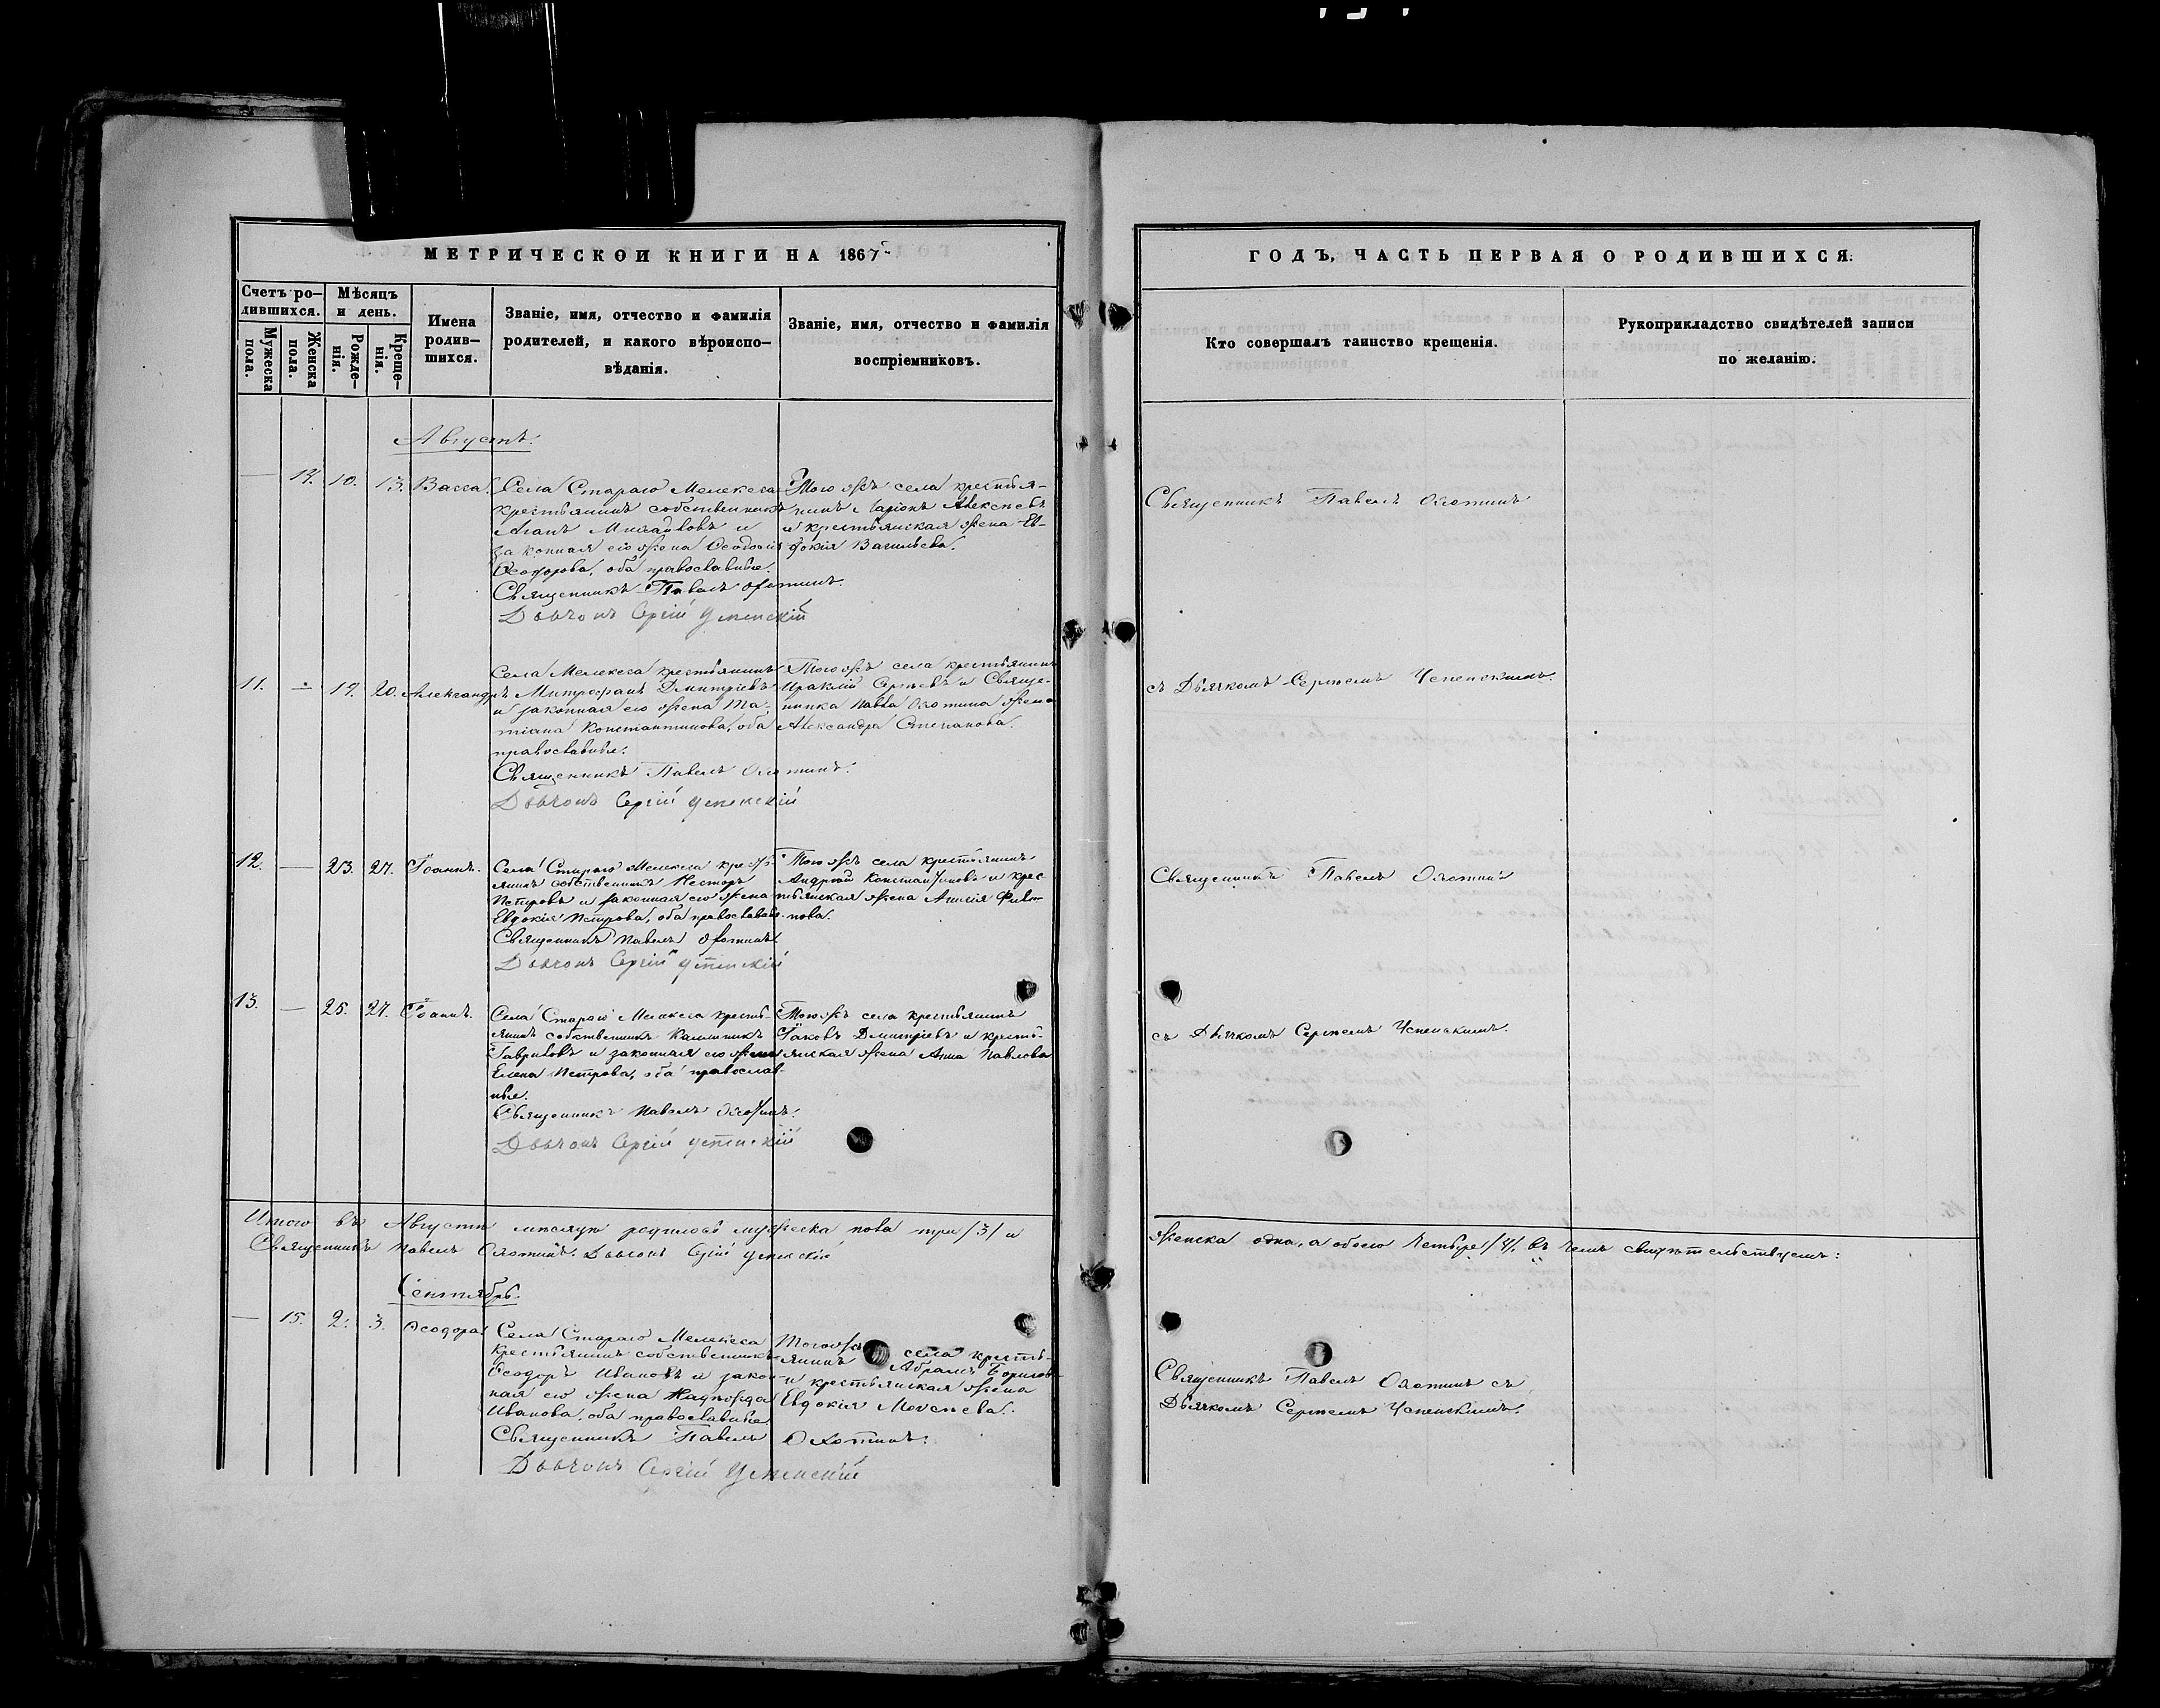 МЕТРИЧЕСКОЙ КНИГИ НА 1867
Счетъ ро-
дившихся.
Мужеска
пола.
Женска
пола.
Мѣсяцъ
и день.
Рожде-
нія.
Креще-
нія.
Имена
родив-
шихся.
Званіе, имя, отчество и фамилія
родителей, и какого вѣроиспо-
вѣданія.
Званіе, имя, отчество и фамилія
воспріемниковъ.
Августъ.
— 14. 10. 13. Васса.
Села Стараго Мелекеса
крестьянинъ собственникъ
Михайловъ и
законная его жена Ѳеодосія
Ѳеодорова, оба православные.
Священникъ Павелъ Охотинъ.
Дьячокъ Сергій Успенскій
Того жъ села крестья-
нинъ Ларіонъ Алексѣевъ
и крестьянская жена Ев-
докія Васильева.
11. — 19. 20. Александръ
Села Мелекеса крестьянинъ
Митрофанъ Дмитріевъ
и законная его жена Та-
тіана Константинова, оба
православные.
Священникъ Павелъ Охотинъ.
Дьячокъ Сергій Успенскій
Того жъ села крестьянинъ
Ираклій Сергѣевъ и Свяще-
нника Павла Охотина жена
Александра Степанова.
12. — 23. 27. Іоаннъ.
Села Стараго Мелекеса кресть-
янинъ собственникъ Несторъ
Петровъ и законная его жена
Евдокія Петрова, оба православные.
Священникъ Павелъ Охотинъ
Дьячокъ Сергій Успенскій
Того жъ села крестьянинъ
Андрей Константиновъ и крес-
тьянская жена Анисія Фили-
пова.
13. — 25. 27. Іоаннъ.
Села Стараго Мелекеса кресть-
янинъ собственникъ Каллиникъ
Гавриловъ и законная его жена
Елена Петрова, оба православ-
ные.
Священникъ Павелъ Охотинъ.
Дьячокъ Сергій Успенскій
Того жъ села крестьянинъ
Іаковъ Дмитріевъ и кресть-
янская жена Анна Павлова
Итого въ Августѣ мѣсяцѣ родилось мужеска пола три /3/ и
Священникъ Павелъ Охотинъ. Дьячокъ Сергій Успенскій
Сентябрь.
— 15. 2. 3. Ѳеодора.
Села Стараго Мелекеса
крестьянинъ собственникъ
Ѳеодоръ Ивановъ и закон-
ная его жена Надежда
Иванова, оба православные.
Священникъ Павелъ Охотинъ.
Дьячокъ Сергій Успенскій
Того жъ села кресть-
янинъ Абрамъ Борисовъ
и крестьянская жена
Евдокія Моисеева.
ГОДЪ, ЧАСТЬ ПЕРВАЯ О РОДИВШИХСЯ.
Кто совершалъ таинство крещенія.
Рукоприкладство свидѣтелей записи
по желанію.
Священникъ Павелъ Охотинъ
съ Дьячкомъ Сергѣемъ Успенскимъ.
Священникъ Павелъ Охотинъ
съ Дьячкомъ Сергѣемъ Успенскимъ.
женска одна, а обоего четыре /4/, въ чемъ свидѣтельствуемъ:
Священникъ Павелъ Охотинъ съ
Дьячкомъ Сергѣемъ Успенскимъ.